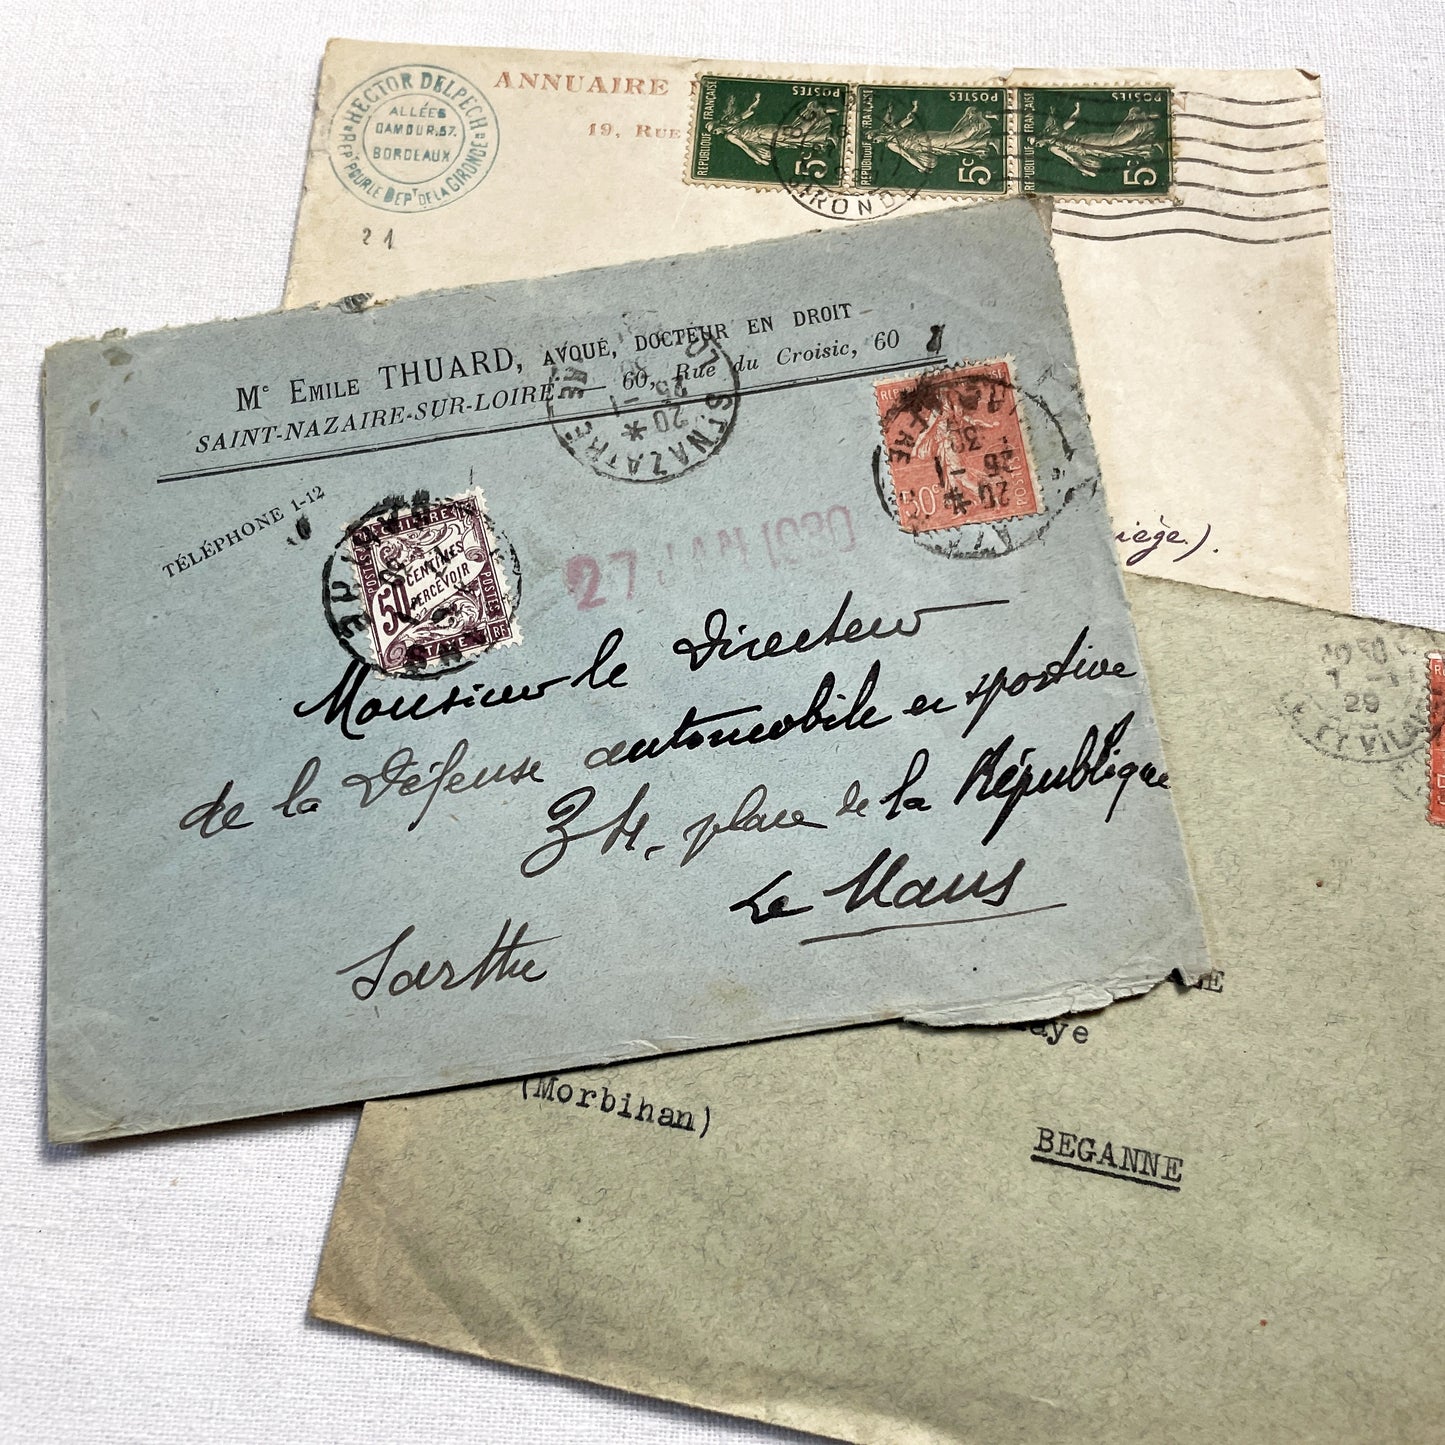 HECTOR DELPECH
ALLÉES
DAMOUR.57.
BORDEAUX
REPT POUR LE DEPT DE LA GIRONDE
21
ANNUAIRE
19, RUE
RÉPUBLIQUE FRANÇAISE
POSTES
5c
RÉPUBLIQUE FRANÇAISE
POSTES
5c
RÉPUBLIQUE FRANÇAISE
POSTES
5c
GIRONDE
iège).
Me EMILE THUARD, AVOUÉ, DOCTEUR EN DROIT
SAINT-NAZAIRE-SUR-LOIRE — 60, Rue du Croisic, 60
TÉLÉPHONE 1-12
ST NAZAIRE
20 *
25 -1
30
20 *
26 -1
30
50c
POSTES
POSTES
50
CENTIMES
A PERCEVOIR
POSTES
TAXE
RF
27 JAN 1930
Monsieur le Directeur
de la Défense automobile et sportive
34, place de la République
Le Mans
Sarthe
29
ET VIL
aye
(Morbihan)
BEGANNE